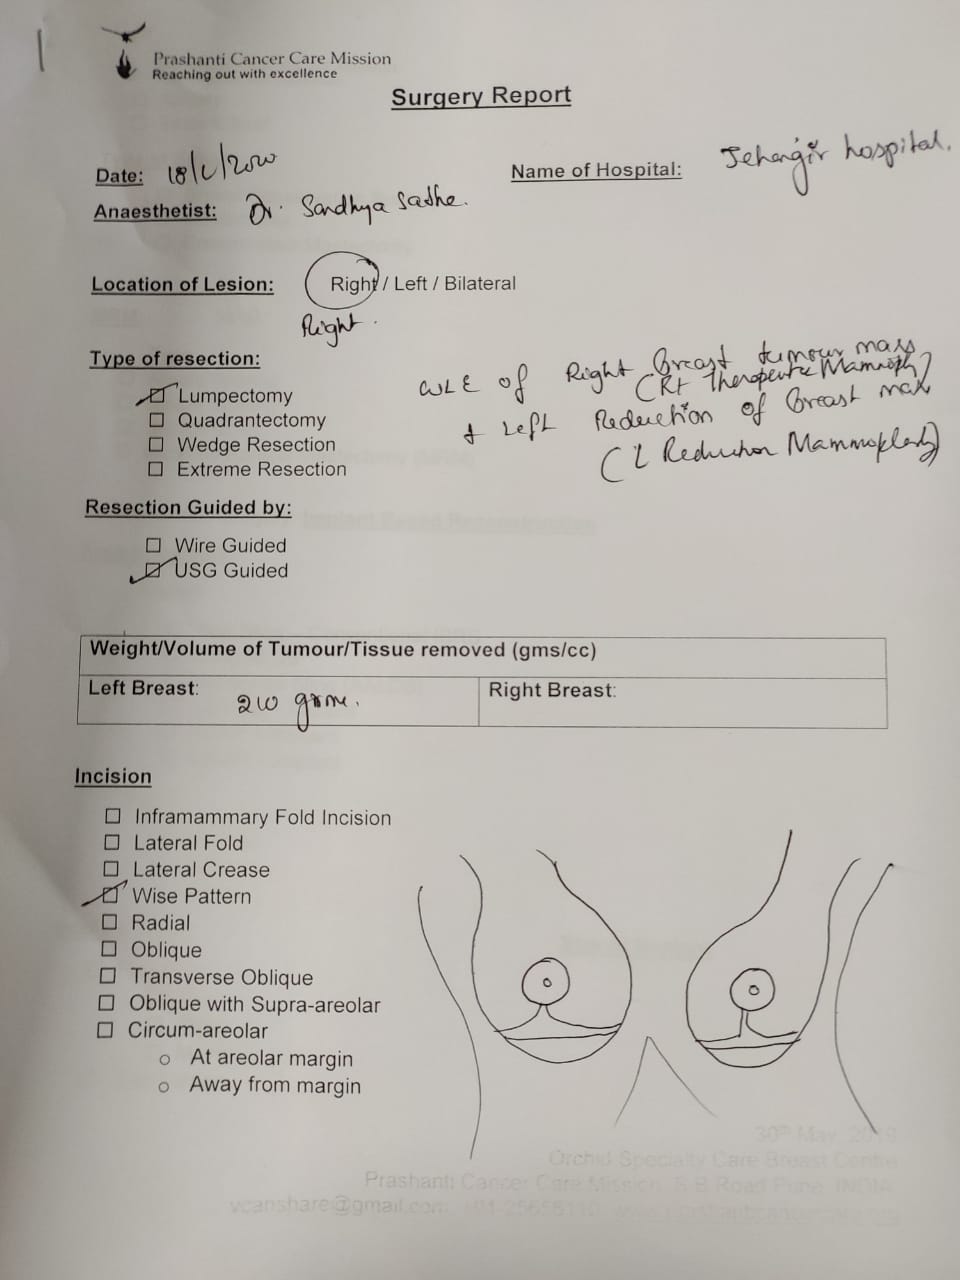 Prashanti Cancer Care Mission
Reaching out with excellence
Surgery Report
Date: 18/ /2020
Name of Hospital: Jehangir hospital.
Anaesthetist: Dr. Sandhya Sathe.
Location of Lesion: Right / Left / Bilateral
Right.
Type of resection:
WLE of Right Breast tumour mass
(Rt Therapeutic )
Lumpectomy
+ Left Reduction of Breast
Quadrantectomy
Wedge Resection
(L Reduction Mammoplasty)
Extreme Resection
Resection Guided by:
Wire Guided
USG Guided
Weight/Volume of Tumour/Tissue removed (gms/cc)
Left Breast: 210
Right Breast:
Incision
Inframammary Fold Incision
Lateral Fold
Lateral Crease
Wise Pattern
Radial
Oblique
Transverse Oblique
Oblique with Supra-areolar
Circum-areolar
At areolar margin
Away from margin
30th May, 2019
Orchid Specialty Care Breast Centre
Prashanti Cancer Care Mission, S B Road Pune, INDIA
vcanshare@gmail.com